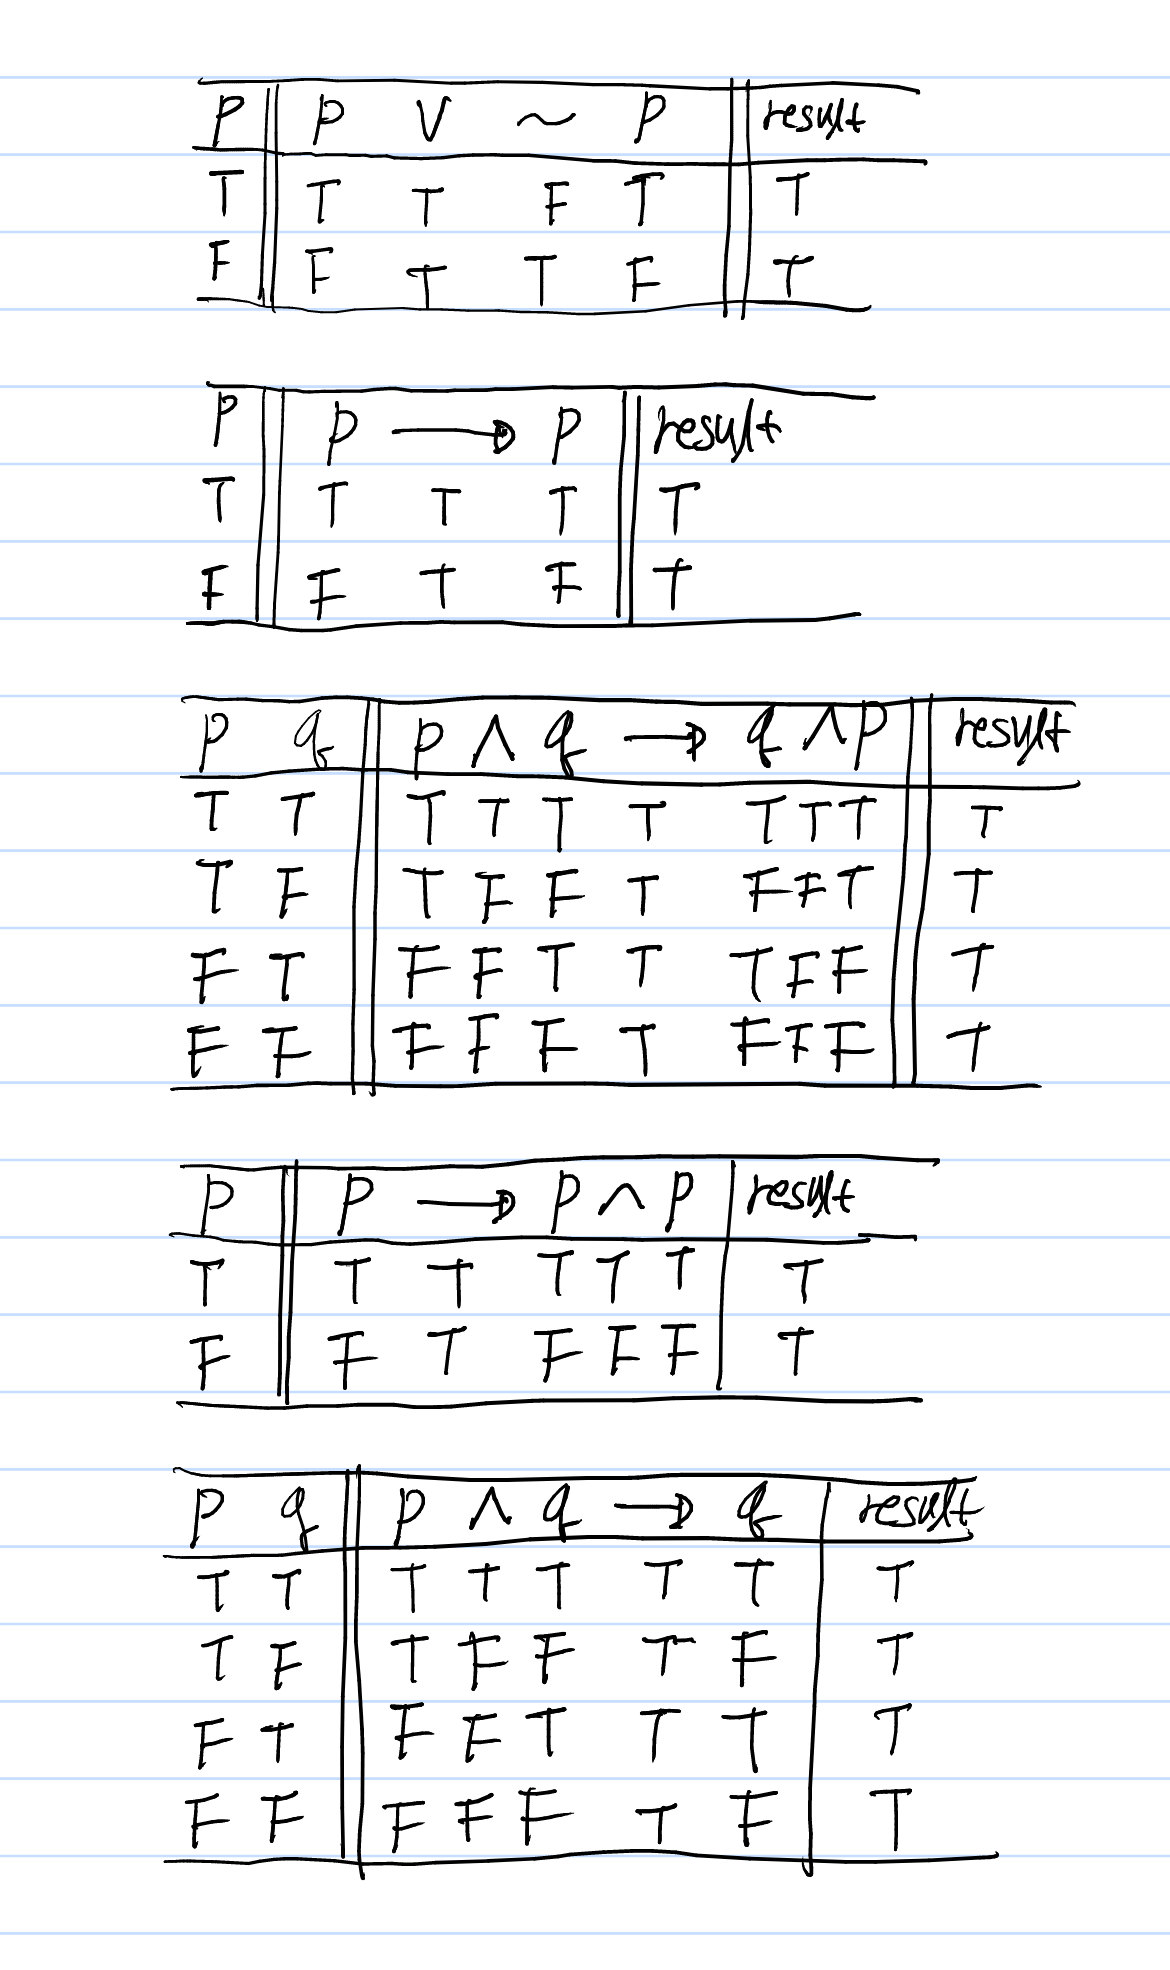 P P V ~ P result
T T T F T T
F F T T F T
P P → P result
T T T T T
F F T F T
P q P ∧ q → q ∧ P result
T T T T T T T T T T
T F T F F T F F T T
F T F F T T T F F T
F F F F F T F F F T
P P → P ∧ P result
T T T T T T T
F F T F F F T
P q P ∧ q → q result
T T T T T T T T
T F T F F T F T
F T F F T T T T
F F F F F T F T